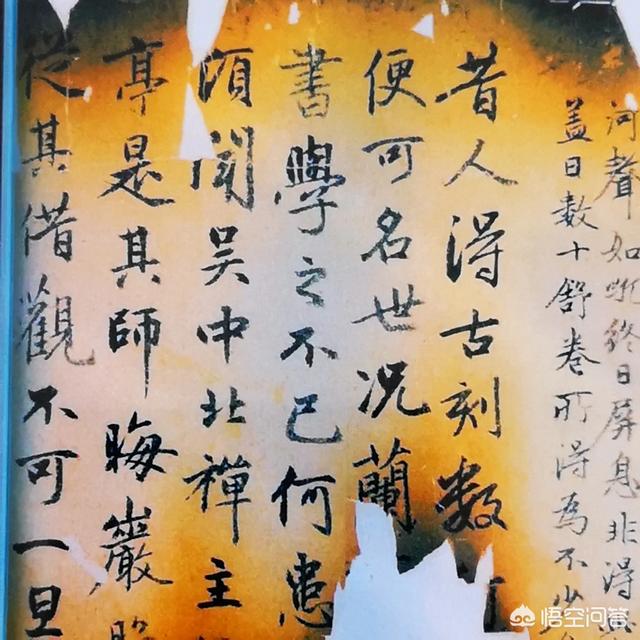 河聲如吼終日屏息非得
蓋日數十舒卷所得為不少
昔人得古刻數
便可名世況蘭
書學之不已何患
頃聞吳中北禪主
亭是其師晦巖
從其借觀不可一旦
悟空问答